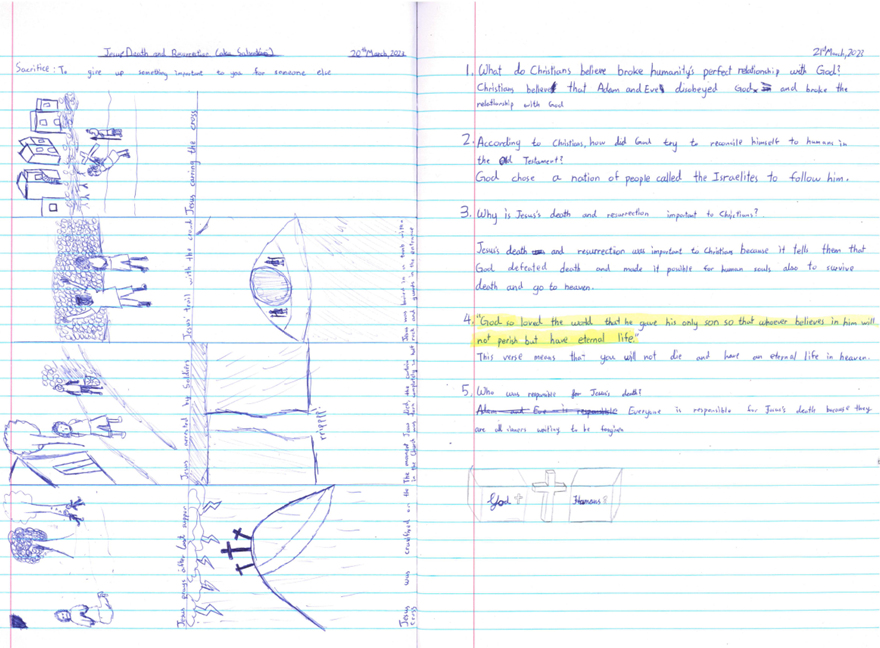 Jesus Death and Resurrection (aka Salvation)
20th March, 2023
Sacrifice: To give up something important to you for someone else
Jesus carring the cross
Jesus' trail with the crowd
Jesus arrested by Soldiers
Jesus prays after Last supper
Jesus was buried in a tomb with
rock and guards in the entrance
The moment Jesus died, the curtain
in the Church was torn completely in half
rrippp!!
Jesus was crucified on the
cross
21st March, 2023
1. What do Christians believe broke humanity's perfect relationship with God?
Christian believe that Adam and Eve disobeyed God and broke the
relationship with God
2. According to Christians, how did God try to reconcile himself to humans in
the Old Testament?
God chose a nation of people called the Israelites to follow him.
3. Why is Jesus's death and resurrection important to Christians?
Jesus's death and resurrection was important to Christian because it tells them that
God defeated death and made it possible for human souls also to survive
death and go to heaven.
4. "God so loved the world that he gave his only son so that whoever believes in him will
not perish but have eternal life."
This verse means that you will not die and have an eternal life in heaven.
5. Who was responsible for Jesus's death?
Adam and Eve is responsible Everyone is responsible for Jesus's death because they
are all sinners waiting to be forgiven
God
Humans